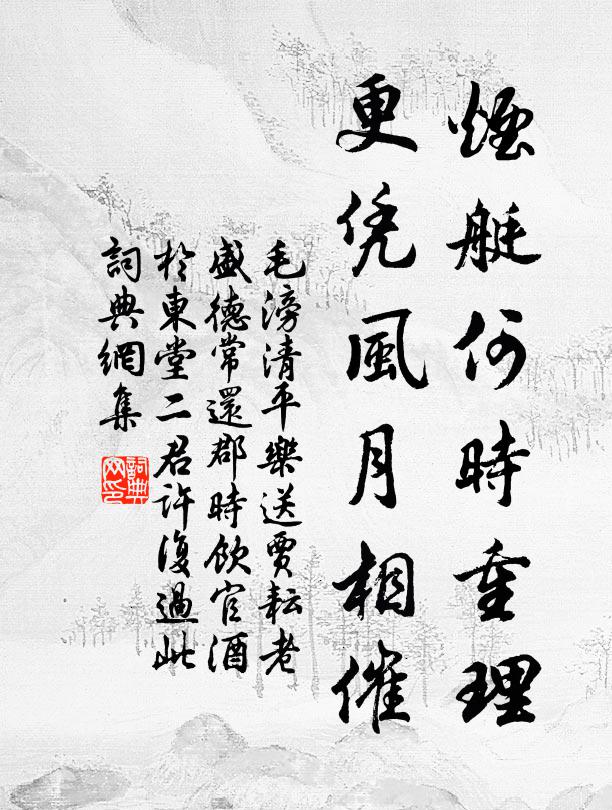 煙艇何時重理
更凭風月相催
毛滂清平樂送賈耘老
盛德常還郡時飲官酒
於東堂二君許復過此
詞典網集
詞典網印